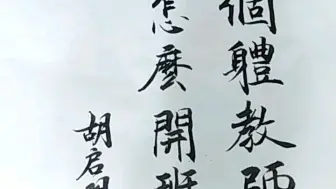 個體教師
怎麼開班
胡启